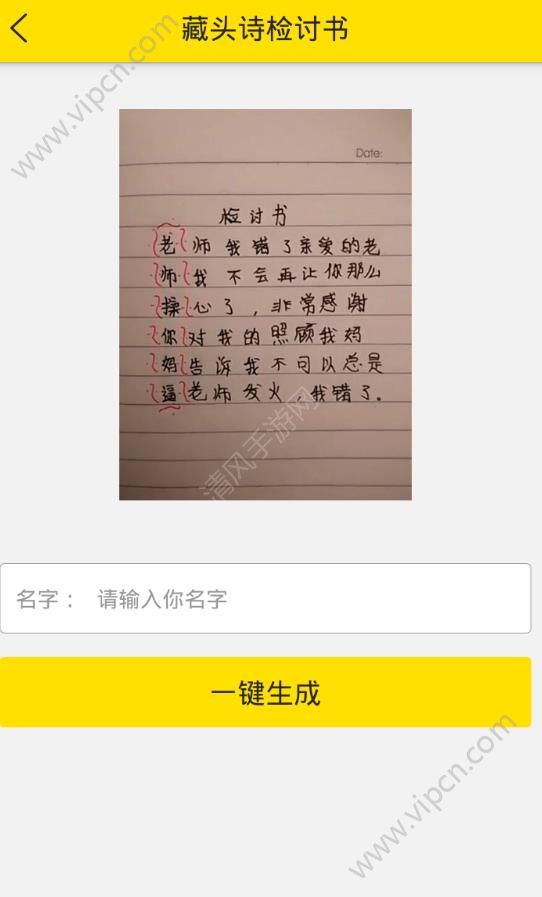 藏头诗检讨书
www.vipcn.com
Date:
检讨书
老师我错了亲爱的老
师我不会再让你那么
操心了，非常感谢
你对我的照顾我妈
妈告诉我不可以总是
逼老师发火，我错了。
清风手游网
名字： 请输入你名字
一键生成
www.vipcn.com